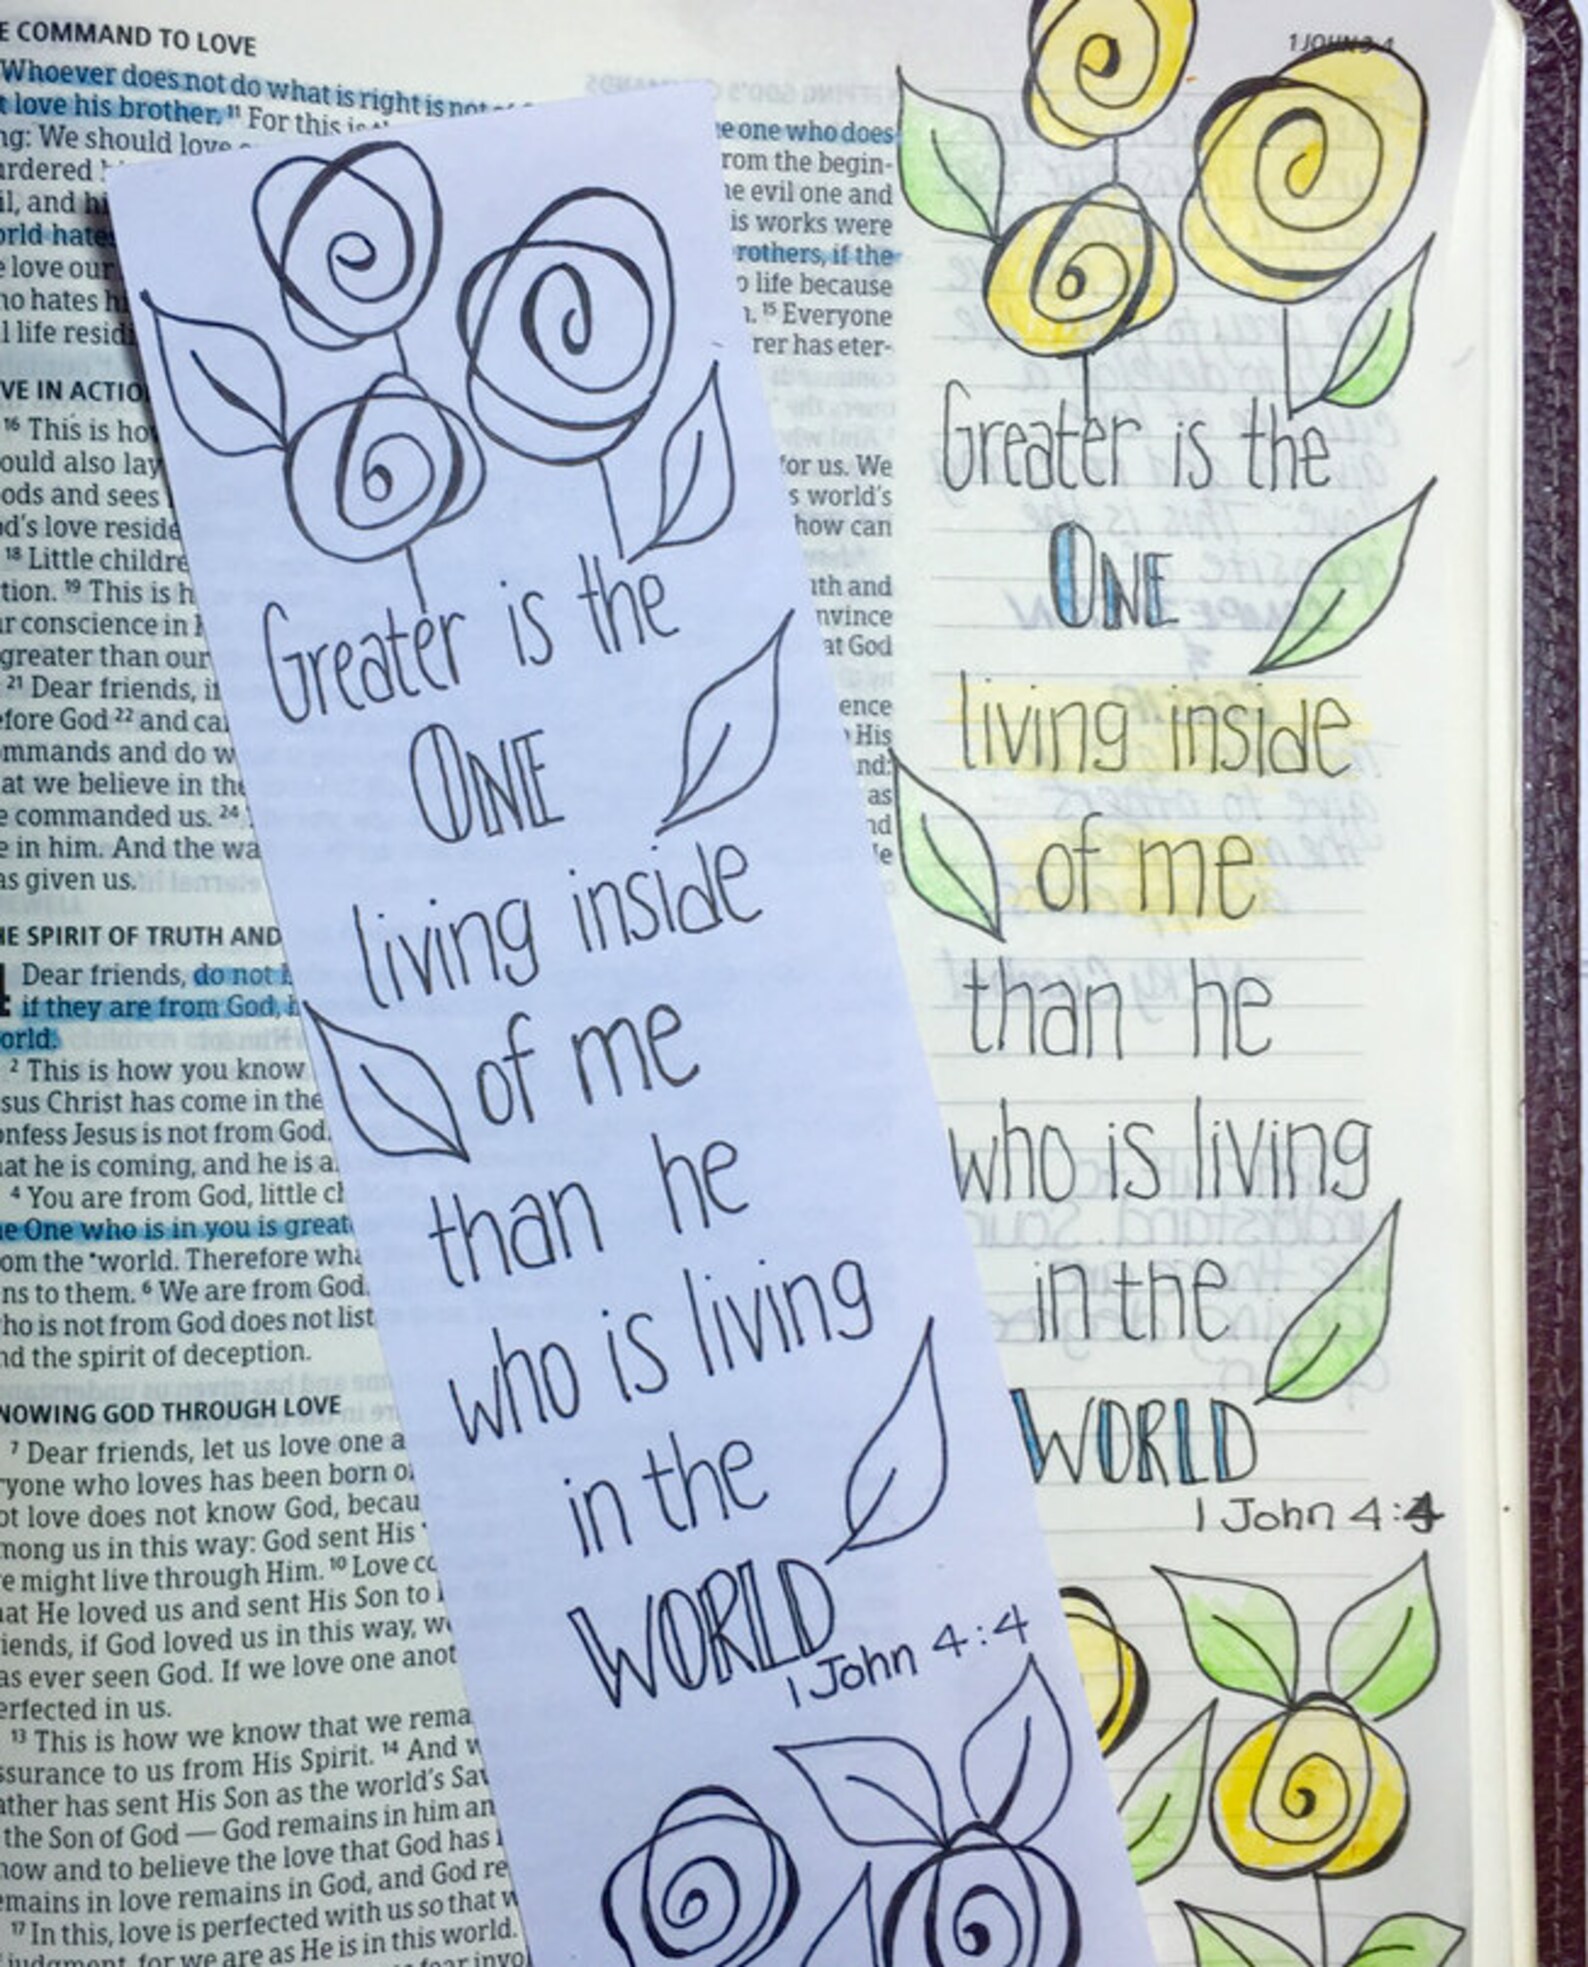 E COMMAND TO LOVE
Whoever does not do what is right is not
t love his brother. 11 For this is
ng: We should love
urdered
il, and hi
orld hates
e love our
no hates h
l life residi
VE IN ACTIO
16 This is ho
ould also lay
ods and sees
od's love reside
18 Little childre
tion. 19 This is h
ur conscience in
greater than our
21 Dear friends, if
efore God 22 and ca
ommands and do w
at we believe in the
e commanded us. 24
e in him. And the wa
as given us.
HE SPIRIT OF TRUTH AND
4 Dear friends, do not
if they are from God, h
orld.
2 This is how you know
sus Christ has come in the
onfess Jesus is not from God.
at he is coming, and he is a
4 You are from God, little ch
e One who is in you is great
om the *world. Therefore wha
ns to them. 6 We are from God.
ho is not from God does not list
nd the spirit of deception.
NOWING GOD THROUGH LOVE
7 Dear friends, let us love one a
ryone who loves has been born o
ot love does not know God, becau
mong us in this way: God sent His
e might live through Him. 10 Love co
at He loved us and sent His Son to
iends, if God loved us in this way, w
as ever seen God. If we love one anot
erfected in us.
13 This is how we know that we rema
ssurance to us from His Spirit. 14 And w
ather has sent His Son as the world's Sav
the Son of God — God remains in him an
now and to believe the love that God has
emains in love remains in God, and God re
17 In this, love is perfected with us so that w
judgment, for we are as He is in this world.
fear invo
e one who does
rom the begin-
he evil one and
is works were
rothers, if the
o life because
n. 15 Everyone
rer has eter-
for us. We
s world's
how can
uth and
nvince
at God
ence
His
nd:
as
nd
He
Greater is the
ONE
living inside
of me
than he
who is living
in the
WORLD
1 John 4:4
1 JOHN 3-4
Greater is the
ONE
living inside
of me
than he
who is living
in the
WORLD
1 John 4:4